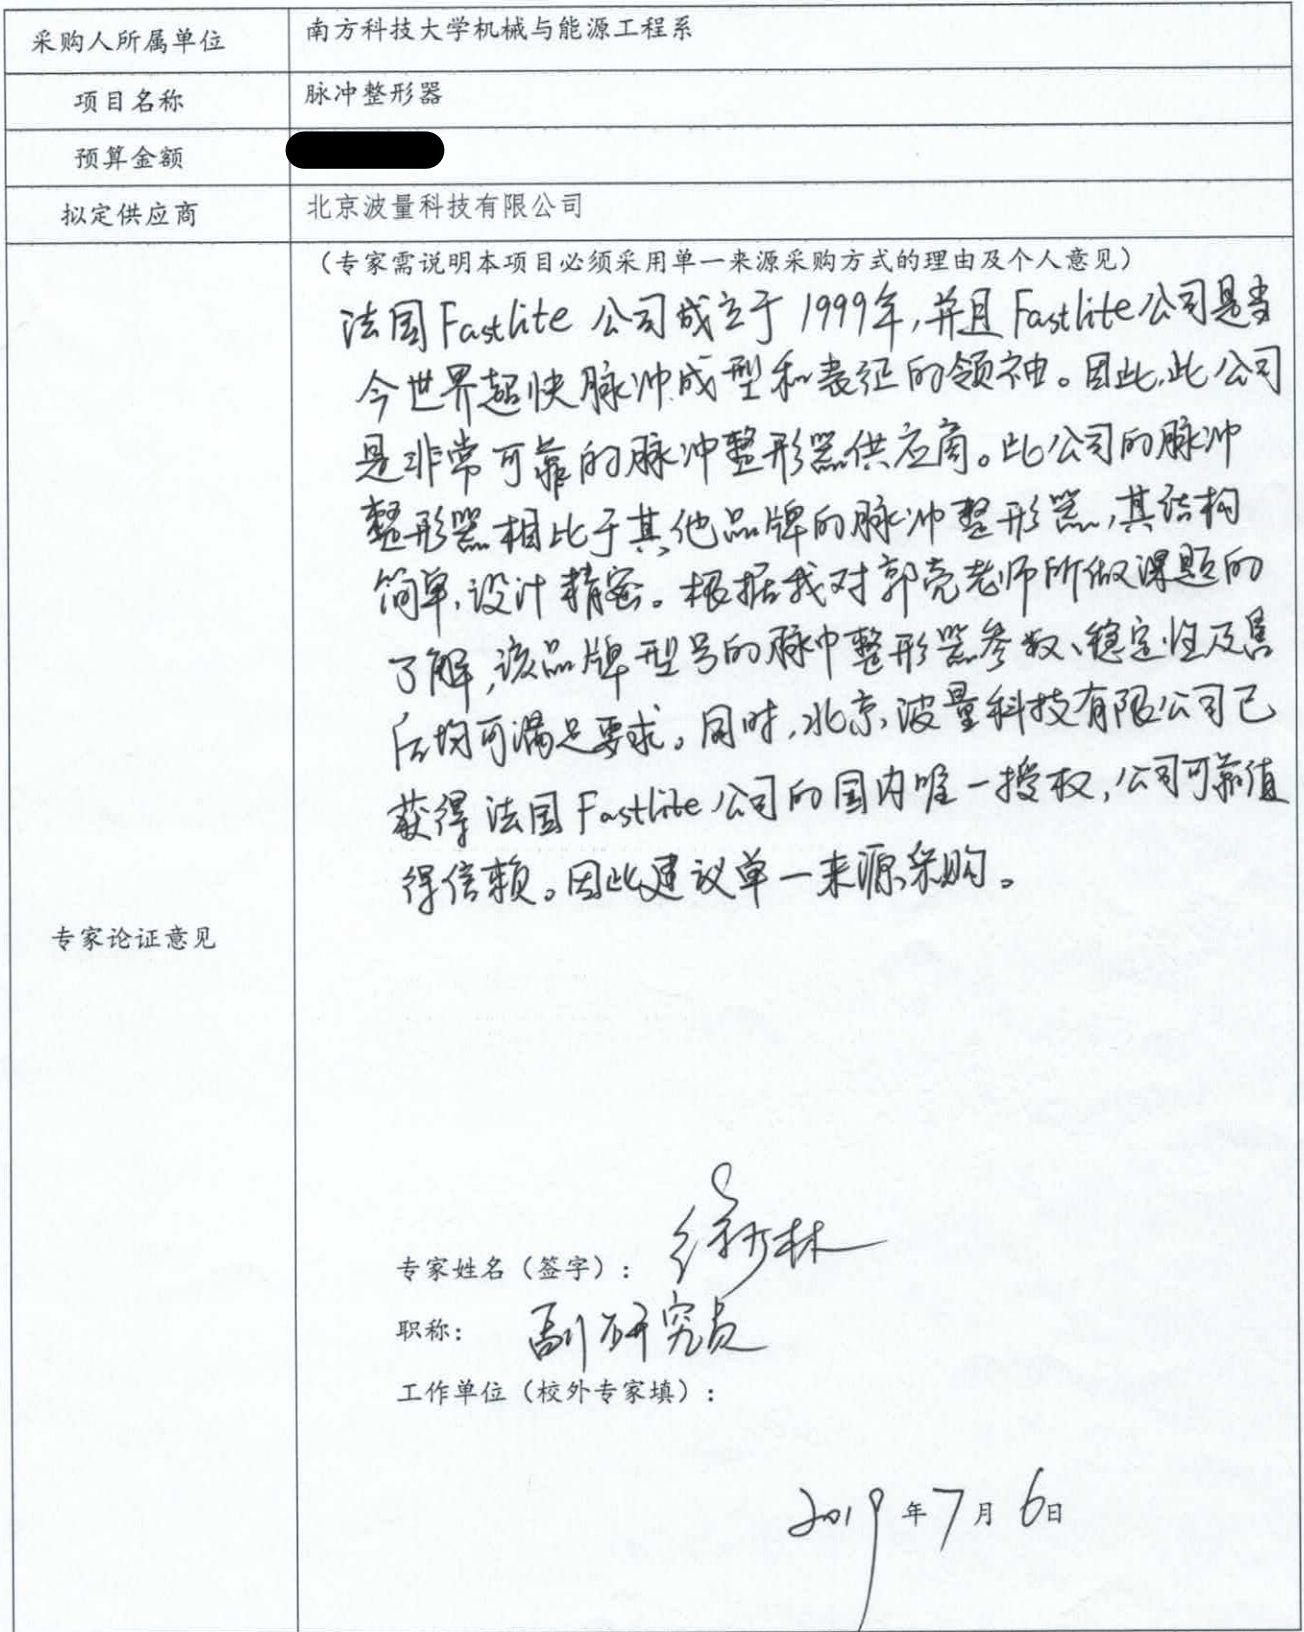 采购人所属单位
南方科技大学机械与能源工程系
项目名称
脉冲整形器
预算金额
拟定供应商
北京波量科技有限公司
专家论证意见
（专家需说明本项目必须采用单一来源采购方式的理由及个人意见）
法国Fastlite公司成立于1999年,并且Fastlite公司是当
今世界超快脉冲成型和表征的领袖。因此,此公司
是非常可靠的脉冲整形器供应商。此公司的脉冲
整形器相比于其他品牌的脉冲整形器,其结构
简单,设计精密。根据我对郭亮老师所做课题的
了解,该品牌型号的脉冲整形器参数、稳定性及售
后均可满足要求。同时,北京波量科技有限公司已
获得法国Fastlite公司的国内唯一授权,公司可靠值
得信赖。因此建议单一来源采购。
专家姓名（签字）：
职称： 副研究员
工作单位（校外专家填）：
2019年7月6日